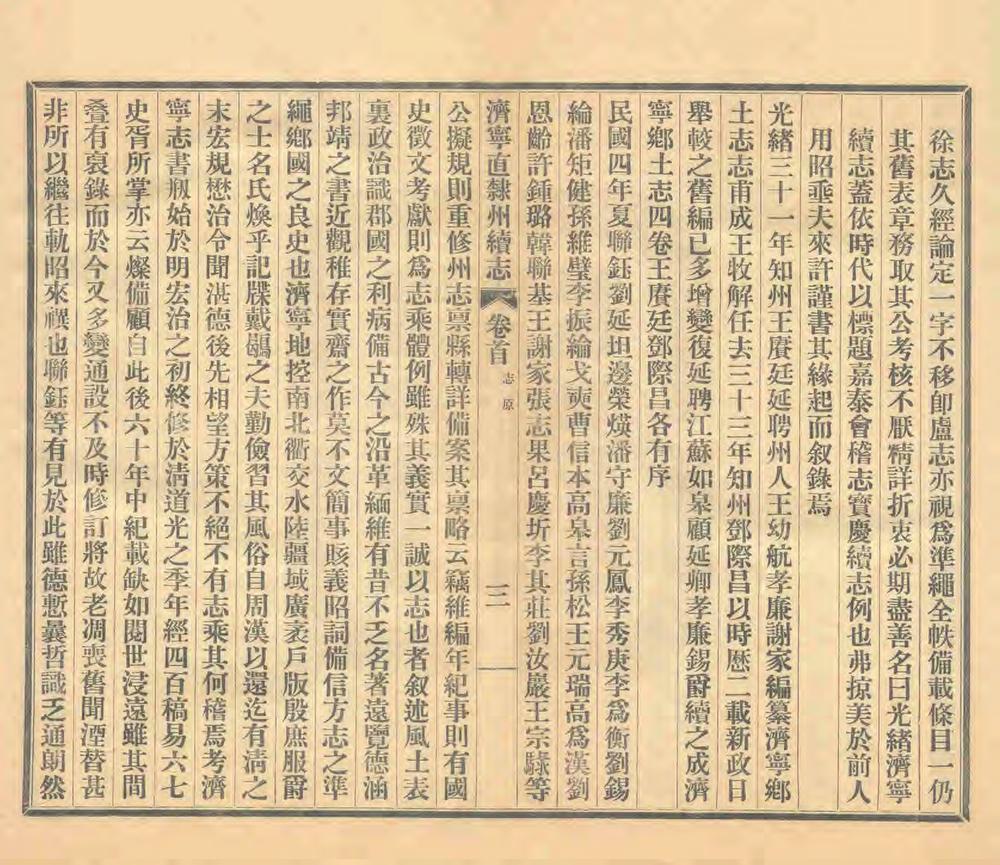 徐志久經論定一字不移卽盧志亦視爲準繩全帙備載條目一仍
其舊表章務取其公考核不厭精詳折衷必期盡善名曰光緒濟寧
續志蓋依時代以標題嘉泰會稽志寶慶續志例也弗掠美於前人
用昭垂夫來許謹書其緣起而叙錄焉
光緒三十一年知州王賡廷延聘州人王幼航孝廉謝家編纂濟寧鄉
土志志甫成王牧解任去三十三年知州鄧際昌以時歷二載新政日
舉較之舊編已多增變復延聘江蘇如皋顧延卿孝廉錫爵續之成濟
寧鄉土志四卷王賡廷鄧際昌各有序
民國四年夏聯鈺劉延坦邊榮煐潘守廉劉元鳳李秀庚李爲衡劉錫
綸潘矩健孫維璧李振綸戈奭曹信本高皋言孫松王元瑞高爲漢劉
恩齡許鍾璐韓聯基王謝家張志果呂慶圻李其莊劉汝巖王宗騄等
濟寧直隸州續志 卷首 志原 三
公擬規則重修州志禀縣轉詳備案其禀略云竊維編年紀事則有國
史徵文考獻則爲志乘體例雖殊其義實一誠以志也者叙述風土表
裏政治識郡國之利病備古今之沿革緬維有昔不乏名著遠覽德涵
邦靖之書近觀稚存實齋之作莫不文簡事賅義昭詞備信方志之準
繩鄉國之良史也濟寧地控南北衢交水陸疆域廣袤戶版殷庶服爵
之士名氏煥乎記牒戴鶡之夫勤儉習其風俗自周漢以還迄有清之
末宏規懋治令聞湛德後先相望方策不絕不有志乘其何稽焉考濟
寧志書剏始於明宏治之初終修於清道光之季年經四百稿易六七
史胥所掌亦云燦備顧自此後六十年中紀載缺如閱世浸遠雖其間
叠有裒錄而於今又多變通設不及時修訂將故老凋喪舊聞湮替甚
非所以繼往軌昭來禩也聯鈺等有見於此雖德慙曩哲識乏通朗然